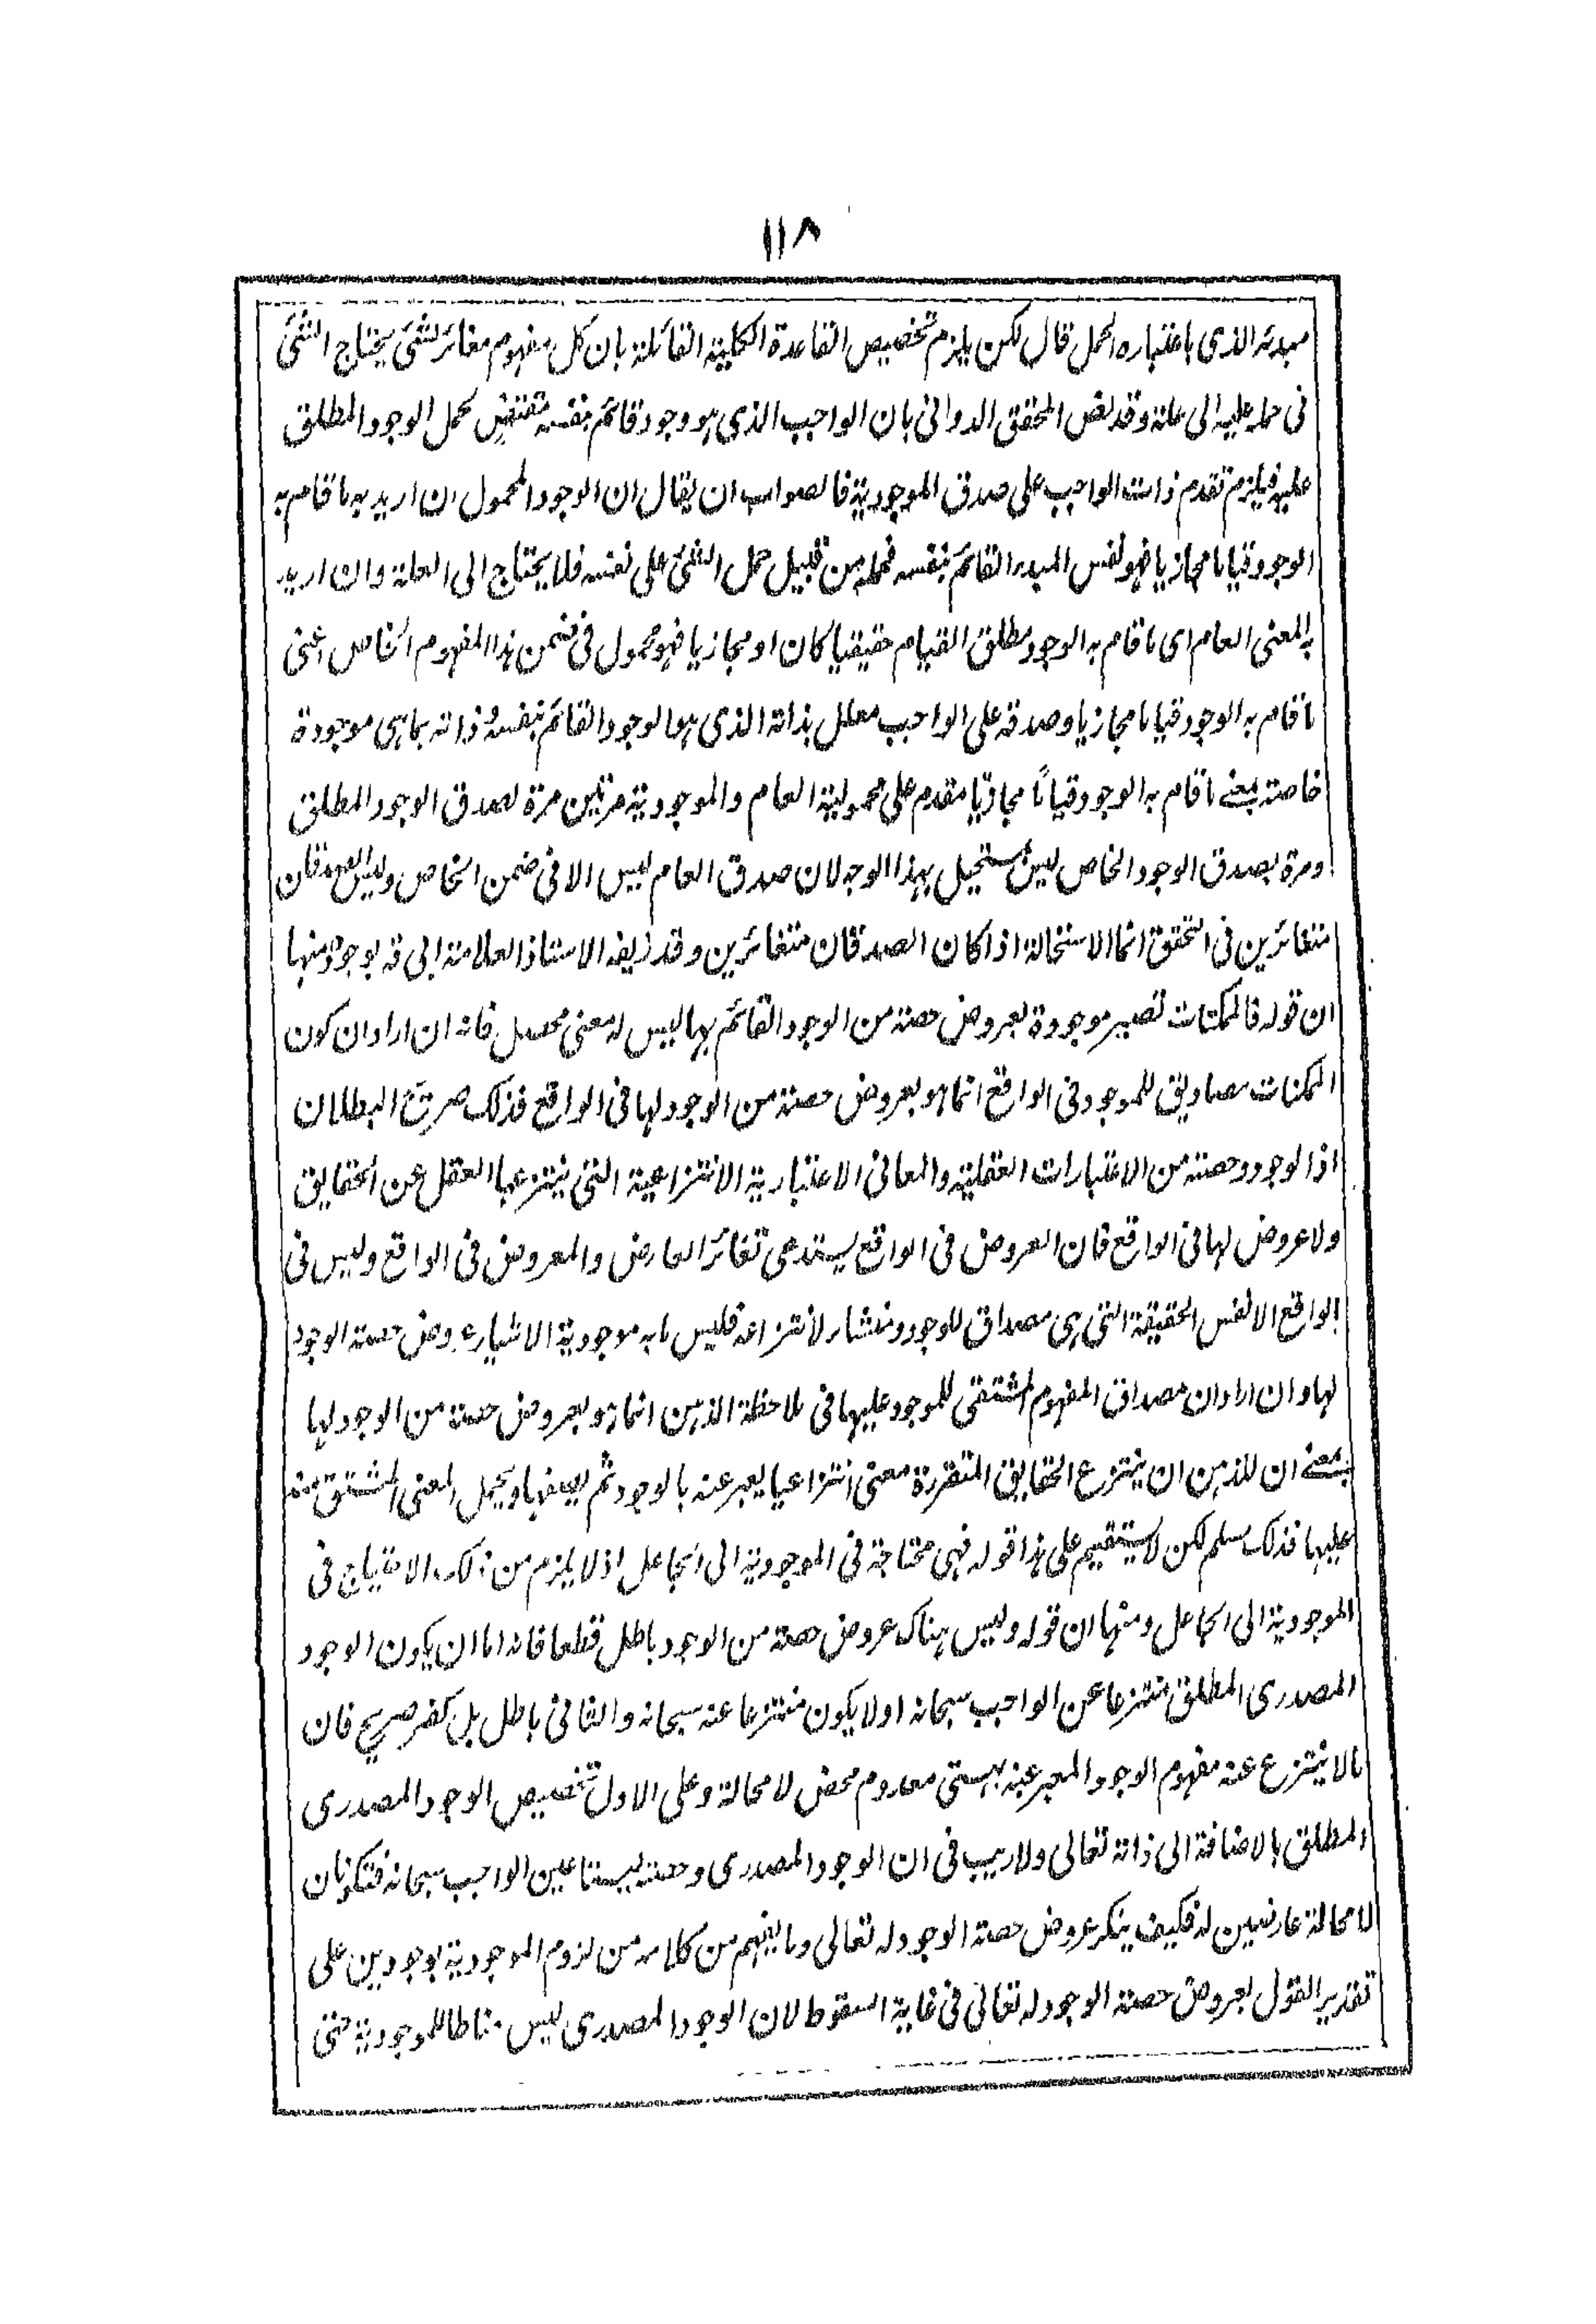 ١١٨
مبدئه الذى باعتباره الحمل قال لكن يلزم تخصيص القاعدة الكلية القائلة بان كل مفهوم مغائر لشئ يحتاج الشئ
فى حمله عليه الى علة وقد نص المحقق الدوانى بان الواجب الذى هو وجود قائم بنفسه مقتض لحمل الوجود المطلق
عليه فيلزم تقدم ذات الواجب على صدق الموجودية فالصواب ان يقال ان الوجود المحمول ان اريد به ما قام به
الوجود قياما مجازيا فهو نفس المبدء القائم بنفسه فحمله من قبيل حمل الشئ على نفسه فلا يحتاج الى العلة وان اريد
به المعنى العام اى ما قام به الوجود مطلق القيام حقيقيا كان او مجازيا فهو محمول فى ضمن هذا المفهوم الخاص اعنى
ما قام به الوجود قياما مجازيا وصدقه على الواجب معلل بذاته الذى هو الوجود القائم بنفسه وذاته بما هى موجودة
خاصة بمعنے ما قام به الوجود قياماً مجازيا مقدم على محمولية العام والموجودية مرتين مرة لصدق الوجود المطلق
ومرة بصدق الوجود الخاص ليس بمستحيل بهذا الوجه لان صدق العام ليس الا فى ضمن الخاص وليس الصدقان
متغائرين فى التحقق انما الاستحالة اذا كان الصدقان متغائرين وقد زيفه الاستاذ العلامة ابى قه بوجوه منها
ان قوله فالممكنات تصير موجودة بعروض حصة من الوجود القائم بها ليس له معنى محصل فانه ان اراد ان كون
الممكنات مصاديق للموجود فى الواقع انما هو بعروض حصة من الوجود لها فى الواقع فذلك صريح البطلان
اذ الوجود وحصته من الاعتبارات العقلية والمعانى الاعتبارية الانتزاعية التى ينتزعها العقل عن الحقايق
ولا عروض لها فى الواقع فان العروض فى الواقع يستدعى تغائر العارض والمعروض فى الواقع وليس فى
الواقع الا نفس الحقيقة التى هى مصداق للوجود ومنشاء لانتزاعه فليس ما به موجودية الاشياء عروض حصة الوجود
لها وان اراد ان مصداق المفهوم المشتقى للموجود عليها فى ملاحظة الذهن انما هو بعروض حصة من الوجود لها
بمعنے ان للذهن ان ينتزع الحقايق المتقررة معنى انتزاعيا يعبر عنه بالوجود ثم يصفها ويحمل المعنى المشتق منه
عليها فذلك مسلم لكن لا يستقيم على هذا قوله فهى محتاجة فى الموجودية الى الجاعل اذ لا يلزم من ذلك الاحتياج فى
الموجودية الى الجاعل ومنها ان قوله وليس هناك عروض حصة من الوجود باطل قطعا فانه اما ان يكون الوجود
المصدرى المطلق منتزعا عن الواجب سبحانه او لا يكون منتزعا عنه سبحانه والثانى باطل بل كفر صريح فان
ما لا ينتزع عنه مفهوم الوجود المعبر عنه بهستى معدوم محض لا محالة وعلى الاول تخصيص الوجود المصدرى
المطلق بالاضافة الى ذاته تعالى ولا ريب فى ان الوجود المصدرى وحصته ليستا عين الواجب سبحانه فتكونان
لا محالة عارضين له فكيف ينكر عروض حصة الوجود له تعالى وما يفهم من كلامه من لزوم الموجودية بوجودين على
تقدير القول بعروض حصة الوجود له تعالى فى غاية السقوط لان الوجود المصدرى ليس مناطا للموجودية حتى